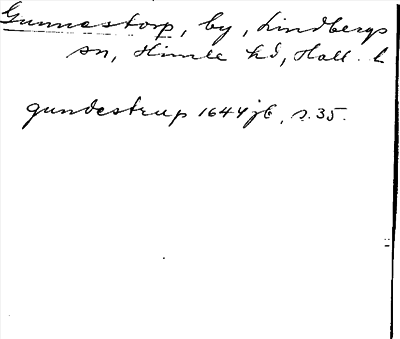 Gunnestorp, by, Lindbergs
sn, Himle hd, Hall. l
gundestrup 1644 jb, s. 35.